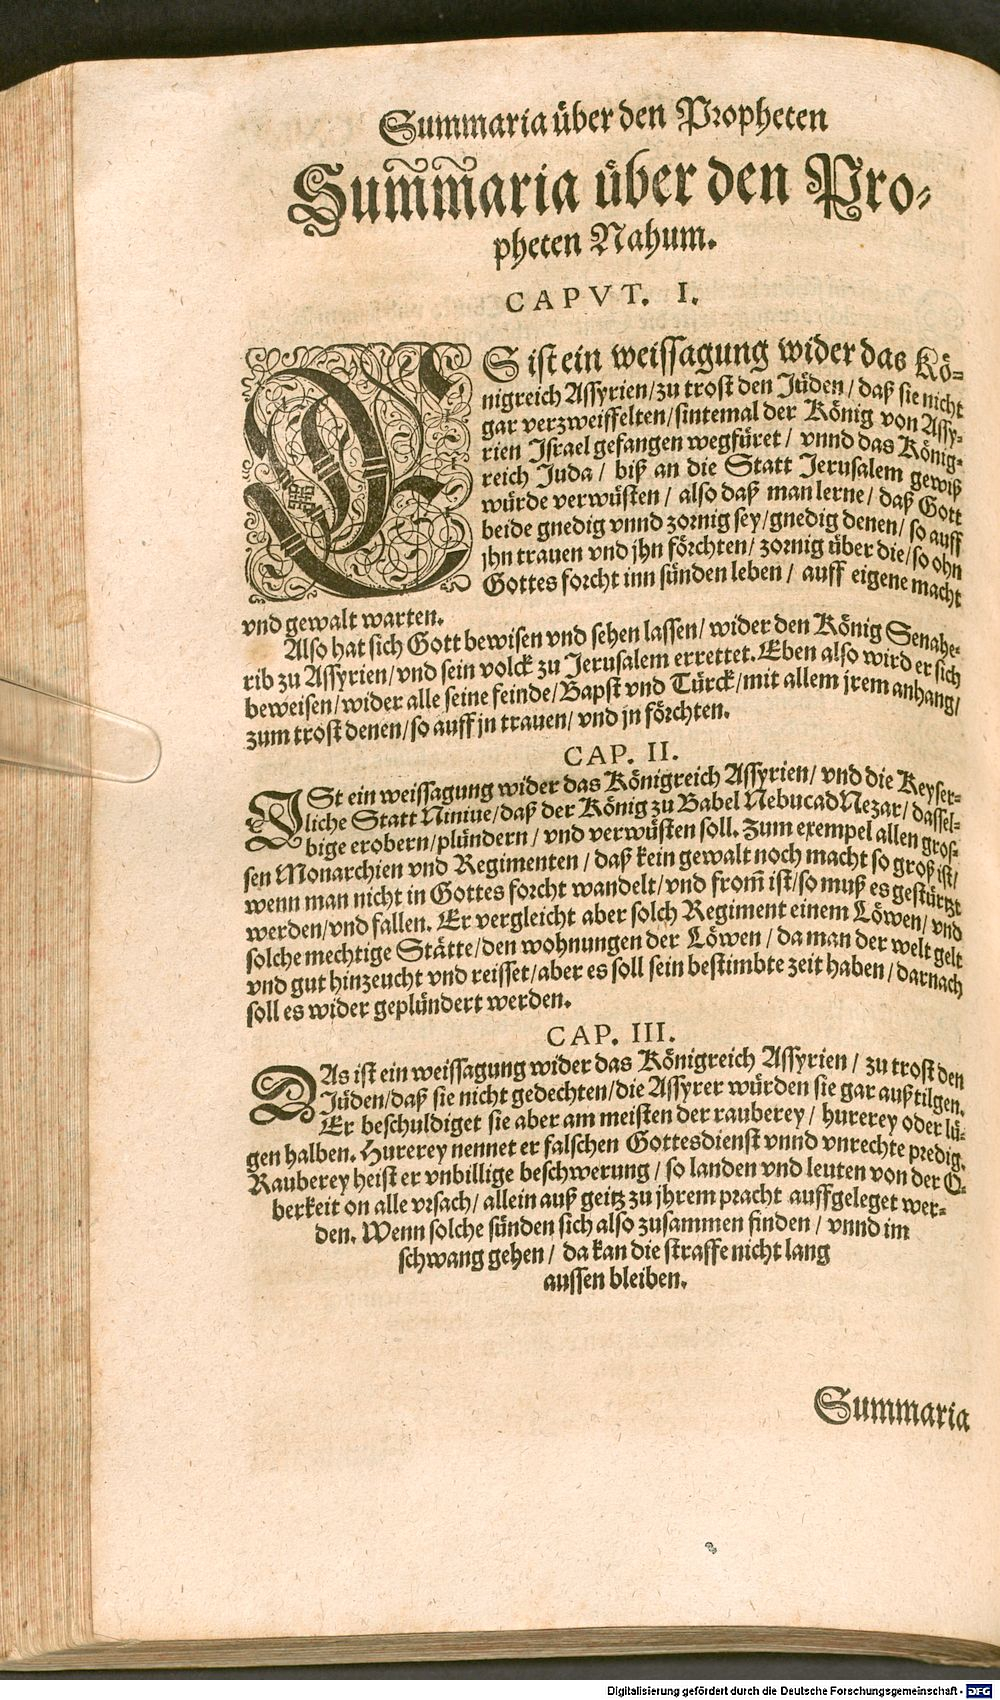 Summaria über den Propheten
Sum̃m̃aria über den Pro-
pheten Nahum.
CAPVT. I.
ES ist ein weissagung wider das Kö-
nigreich Assyrien/zu trost den Jüden/daß sie nicht
gar verzweiffelten/sintemal der König von Assy-
rien Israel gefangen wegfüret/vnnd das König-
reich Juda/biß an die Statt Jerusalem gewiß
würde verwüsten/also daß man lerne/daß Gott
beide gnedig vnnd zornig sey/gnedig denen/so auff
jhn trauen vnd jhn förchten/zornig über die/so ohn
Gottes forcht inn sünden leben/auff eigene macht
vnd gewalt warten.
Also hat sich Gott bewisen vnd sehen lassen/wider den König Senahe-
rib zu Assyrien/vnd sein volck zu Jerusalem errettet. Eben also wird er sich
beweisen/wider alle seine feinde/Bapst vnd Türck/mit allem jrem anhang/
zum trost denen/so auff jn trauen/vnd jn förchten.
CAP. II.
ISt ein weissagung wider das Königreich Assyrien/vnd die Keyser-
liche Statt Niniue/daß der König zu Babel NebucadNezar/dassel-
bige erobern/plündern/vnd verwüsten soll. Zum exempel allen gros-
sen Monarchien vnd Regimenten/daß kein gewalt noch macht so groß ist/
wenn man nicht in Gottes forcht wandelt/vnd from̃ ist/so muß es gestürtzt
werden/vnd fallen. Er vergleicht aber solch Regiment einem Löwen/vnd
solche mechtige Stätte/den wohnungen der Löwen/da man der welt gelt
vnd gut hinzeucht vnd reisset/aber es soll sein bestimbte zeit haben/darnach
soll es wider geplündert werden.
CAP. III.
DAs ist ein weissagung wider das Königreich Assyrien/zu trost den
Jüden/daß sie nicht gedechten/die Assyrer würden sie gar außtilgen.
Er beschuldiget sie aber am meisten der rauberey/hurerey oder lü-
gen halben. Hurerey nennet er falschen Gottesdienst vnnd vnrechte predig.
Rauberey heist er vnbillige beschwerung/so landen vnd leuten von der O-
berkeit on alle vrsach/allein auß geitz zu jhrem pracht auffgeleget wer-
den. Wenn solche sünden sich also zusammen finden/vnnd im
schwang gehen/da kan die straffe nicht lang
aussen bleiben.
Summaria
Digitalisierung gefördert durch die Deutsche Forschungsgemeinschaft - DFG